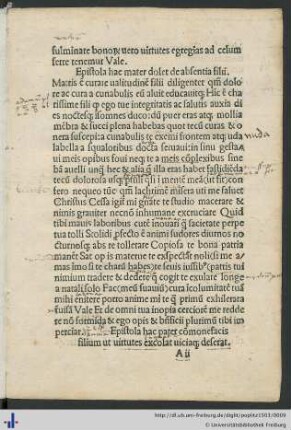 fulminare bonoꝝ vero virtutes egregias ad celum
ferre tenemur Vale.
Epistola hac mater dolet de absentia filii.
Matris ē curare valitudinē filii diligenter qm̄ dolo
re ac cura a cunabulis eū aluit educavitqꝫ Hic ē cha
rissime fili ꝙ ego tue integritatis ac salutis auxia di
es noctesqꝫ somnes duco: dū puer eras atqꝫ mollia
mēbra & succi plena habebas quot tecū curas & o
nera suscepi: a cunabulis te
labella a squaloribus docta servavi: in sinu gesta
vi meis opibus fovi neqꝫ te a meis cōplexibus sine
bā avelli unqꝫ̄ hec & alia illa eras habet fastidiēda
tecū dolorosa
fero nequeo tūc qm̄ lachrime misera uti me faluet
Christus Cessa igit mi gnate te studio macerare &
nimis graviter necnō inhumane excruciare Quid
tibi mavis laboribus cutē inovari q̄ facietate perpe
tua tolli Stolidi profecto ē animi sudores diurnos no
cturnosqꝫ abs te tollerare Copiosa te bona patria
manēt Sat op is materne te exspectat noli si me a
mas imo si te charū habes te senis iussibꝰ patris tui
nimium tradere & dedere qui cogit te exulare longe
a natali solo Fac (meū suaviū) cura icolumitatē tuā
mihi ēnitere porto anime mi te q̄ primū exhilerata
fuisā Vale Et de omni tua inopia cerciorē me redde
te nō formida & ego opis & bn̄ficii plurimū tibi im
perciar. Epistola hac pater cōmonefacis
filium ut virtutes excolat viciaqꝫ deserat.
A ii
http://dl.ub.uni-freiburg.de/diglit/poplit1503/0009
© Universitätsbibliothek Freiburg